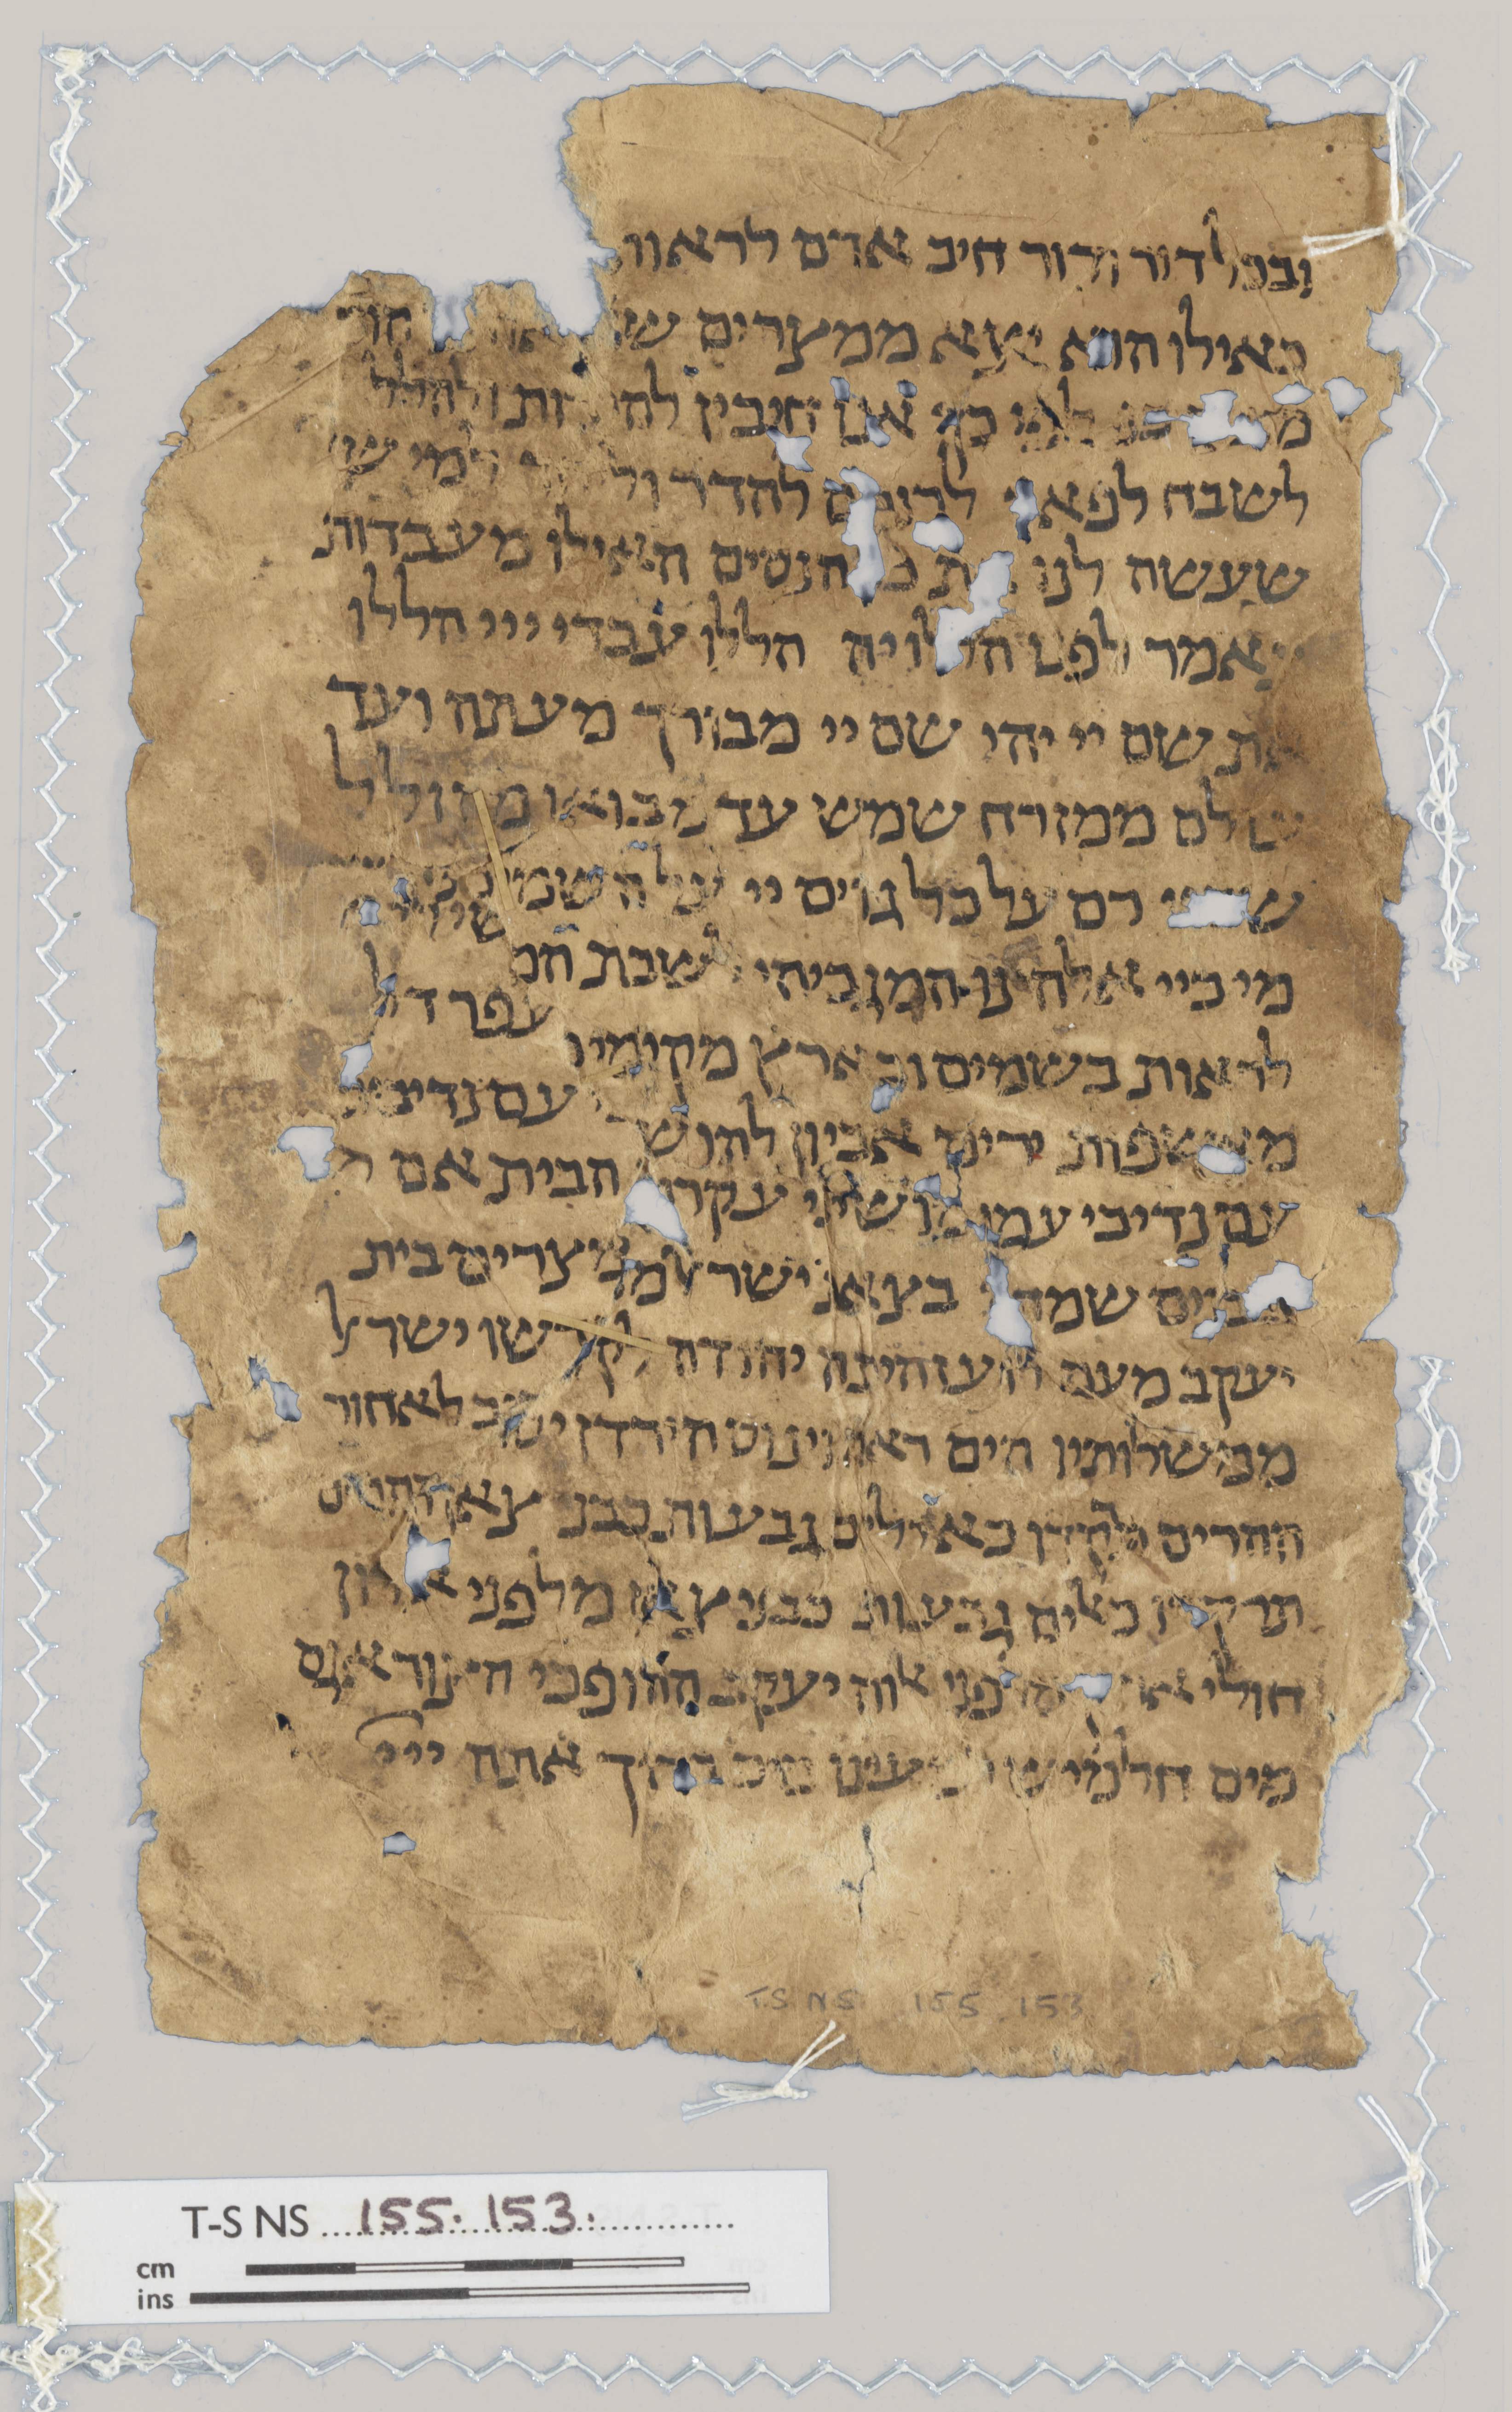 ובכל דור ודור חיב אדם לראות
כאילו הוא יצא ממצרים
לפי כך אנו חיבין להודות ולהלל
לשבח לפאר לרומם להדר למי
שעשה לנו את כל הנסים האילו מעבדות
ונאמר לפניו הללויה הללו עבדי ייי הללו
את שם ייי יהי שם ייי מבורך מעתה ועד
עולם ממזרח שמש עד מבואו מהולל
שם ייי רם על כל גוים ייי על השמים
מי כייי אלהינו המגביהי לשבת
לראות בשמים ובארץ מקימי מעפר דל
מאשפות ירים אביון להושיבי עם נדיבים
עם נדיבי עמו מושיבי עקרת הבית אם
הבנים שמחה בצאת ישראל ממצרים בית
יעקב מעם לועז היתה יהודה לקדשו ישראל
ממשלותיו הים ראה וינוס הירדן יסב לאחור
ההרים רקדו כאילים גבעות כבני צאן ההרים
תרקדו כאילים גבעות כבני צאן מלפני אדון
חולי ארץ מלפני אלוה יעקב ההופכי הצור אגם
מים חלמיש למעינו מים ברוך אתה ייי
T.S. NS. 155. 153
T-S NS 155. 153.
cm
ins